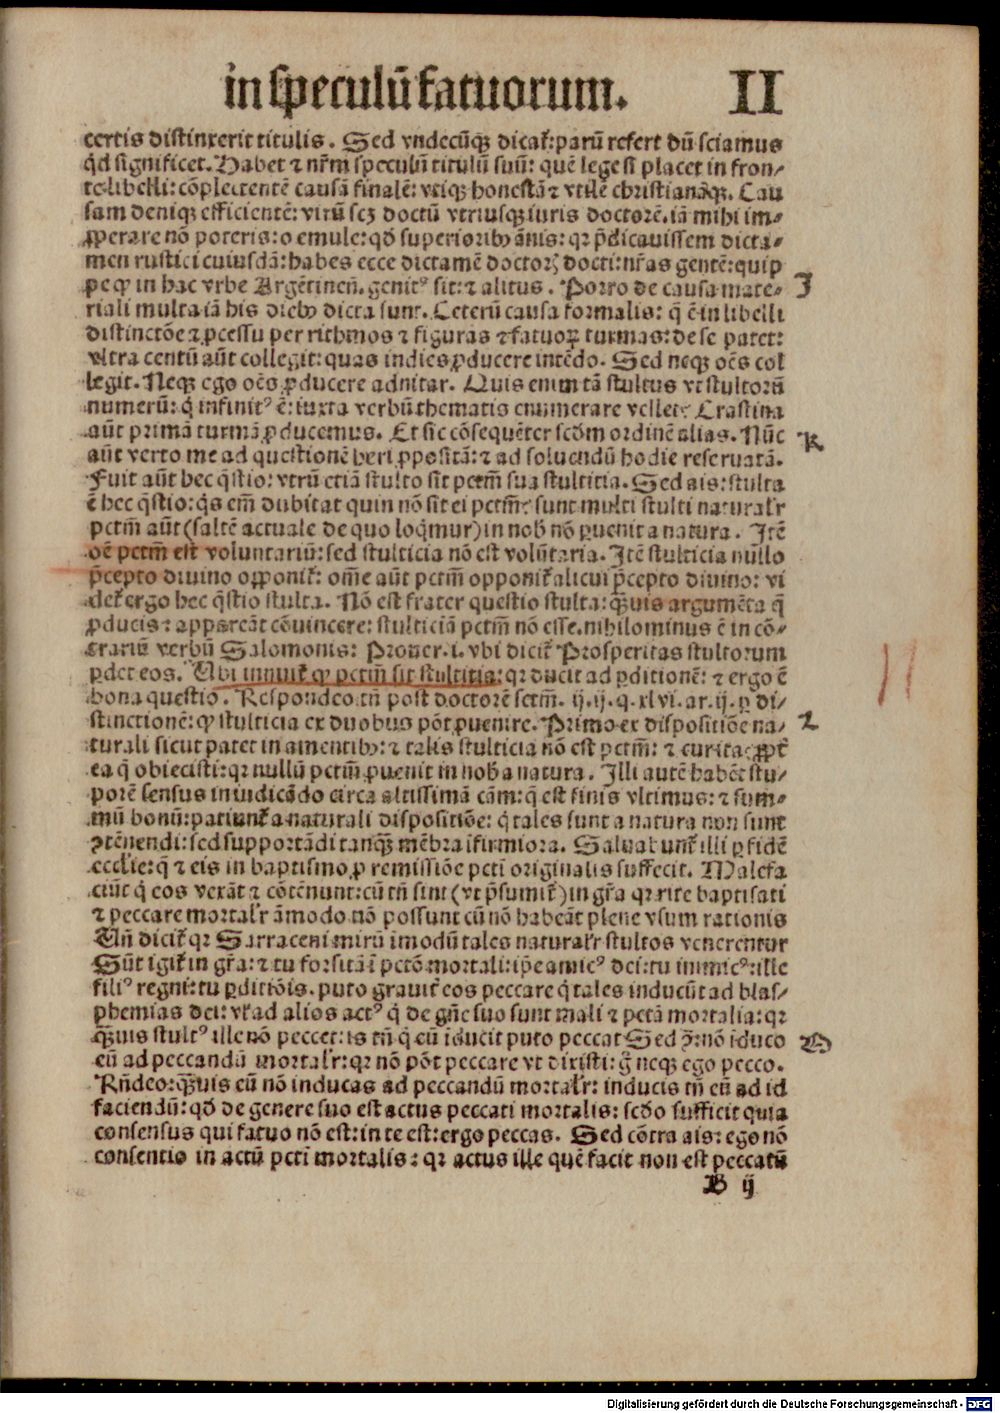 in speculū fatuorum. II
certis distinxerit titulis. Sed vndecūqꝫ dicat᷑: parū refert dū sciamus
qd significet. Habet ⁊ nr̄m speculū titulū suū: quē lege si placet in fron⸗
te libelli: cōplectentē causā finalē: vtiqꝫ honestā ⁊ vtilē christianāqꝫ. Cau
sam deniqꝫ efficientē: virū scꝫ doctū vtriusqꝫ iuris doctorē. iā mihi im⸗
ꝓperare nō poteris: o emule: qd̄ superiorib⁹ ānis: qꝛ p̄dicauissem dicta⸗
men rustici cuiusdā: habes ecce dictamē doctoꝝ docti: nr̄as gentē: quip
pe qꝫ in hac vrbe Argētineñ. genit⁹ sit: ⁊ alitus. Porro de causa mate⸗ J
riali multa iā his dieb⁹ dicta sunt. Ceterū causa formalis: q̄ ē in libelli
distinctōe ⁊ ꝓcessu per rithmos ⁊ figuras ⁊ fatuoꝝ turmas: de se patet:
vltra centū aūt collegit: quas indies ꝓducere intēdo. Sed neqꝫ oēs col
legit. Neqꝫ ego oēs ꝓducere adnitar. Quis enim tā stultus vt stultorū
numerū: q̇ infinit⁹ ē: iuxta verbū thematis enumerare vellet? Crastina
aūt primā turmā ꝓducemus. Et sic cōsequēter scd̄m ordinē alias. Nūc K
aūt verto me ad questionē heri ꝓpositā: ⁊ ad soluendū hodie reseruatā.
Fuit aūt hec q̄stio: vtrū etiā stulto sit pctm̄ sua stulticia. Sed ais: stulta
ē hec q̄stio: q̇s em̄ dubitat quin nō sit ei pctm̄: sunt multi stulti natural̓r
pctm̄ aūt (saltē actuale de quo loq̇mur) in nob̄ nō ꝓuenit a natura. Itē
oē pctm̄ est voluntariū: sed stulticia nō est volūtaria. Itē stulticia nullo
p̄cepto diuino opponit᷑: om̄e aūt pctm̄ opponit᷑ alicui p̄cepto diuino: vi
det᷑ ergo hec q̄stio stulta. Nō est frater questio stulta: qꝫuis argumēta q̄
ꝓducis: appareāt cōuincere: stulticiā pctm̄ nō esse. nihilominus ē in cō⸗
trariū verbū Salomonis: Prouer. i. vbi dicit᷑ Prosperitas stultorum
ꝑdet eos. Vbi innuit᷑ ꝙ pctm̄ sit stulticia: qꝛ ducit ad ꝑditionē: ⁊ ergo ē
bona questio. Respondeo tn̄ post doctorē sctm̄. ij. ij. q. xlvi. ar. ij. ꝑ di⸗
stinctionē: ꝙ stulticia ex duobus pōt ꝓuenire. Primo ex dispositiōe na⸗ L
turali sicut patet in amentib⁹: ⁊ talis stulticia nō est pctm̄: ⁊ cur ita: ꝓpt̄
ea q̄ obiecisti: qꝛ nullū pctm̄ ꝓuenit in nob̄ a natura. Illi autē habēt stu⸗
porē sensus in iudicādo circa altissimā cām: q̄ est finis vltimus: ⁊ sum⸗
mū bonū: patiunt᷑ a naturali dispositiōe: q̇ tales sunt a natura non sunt
ꝯtēnendi: sed supportādi tanqꝫ mēbra ifirmiora. Saluabunt᷑ illi ꝑ fidē
ecclie: q̄ ⁊ eis in baptismo ꝓ remissiōe pcti originalis suffecit. Malefa
ciūt q̇ eos vexāt ⁊ cōtēnunt: cū tn̄ sint (vt p̄sumit᷑) in gr̄a qꝛ rite baptisati
⁊ peccare mortal̓r āmodo nō possunt cū nō habeāt plene vsum rationis
Vn̄ dicit᷑ qꝛ Sarraceni mirū imodū tales natural̓r stultos venerentur
Sūt igit᷑ in gr̄a: ⁊ tu forsitā ī pctō mortali: ip̄e amic⁹ dei: tu inimic⁹: ille
fili⁹ regni: tu ꝑditiōis. puto grauit᷑ eos peccare q̇ tales inducūt ad blas⸗
phemias dei: vl̓ ad alios act⁹ q̇ de gn̄e suo sunt mali ⁊ pctā mortalia: qꝛ
qꝫuis stult⁹ ille nō peccet: is tn̄ q̇ eū iducit puto peccat Sed ꝯ: nō iduco M
eū ad peccandū mortal̓r: qꝛ nō pōt peccare vt dixisti: g̊ neqꝫ ego pecco.
Rn̄deo: qꝫuis eū nō inducas ad peccandū mortal̓r: inducis tn̄ eū ad id
faciendū: qd̄ de genere suo est actus peccati mortalis: scd̄o sufficit quia
consensus qui fatuo nō est: in te est: ergo peccas. Sed cōtra ais: ego nō
consentio in actū pcti mortalis: qꝛ actus ille quē facit non est peccatū
B ij
Digitalisierung gefördert durch die Deutsche Forschungsgemeinschaft - DFG